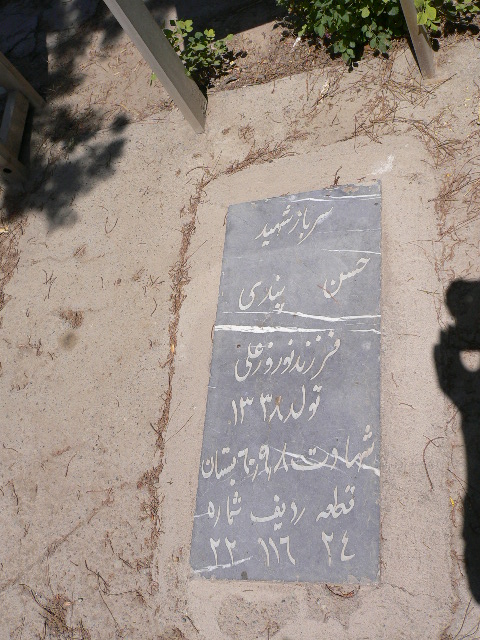 سرباز شهید
حسن پناری
فرزند نوروزعلی
تولد ۱۳۳۸
شهادت ۶۰٫۹٫۸ بستان
قطعه ردیف شماره
۲۴ ۱۱۶ ۲۲